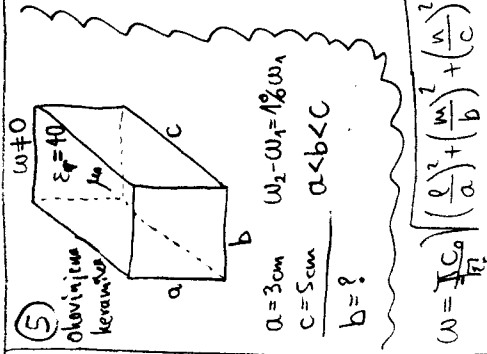 5
okovinjena
keramika
ω≠0
εr=40
μ₀
a
b
c
a=3cm
c=5cm
b=?
ω₂-ω₁=1%ω₁
a<b<c
ω = πc₀/√εr √((l/a)² + (m/b)² + (n/c)²)